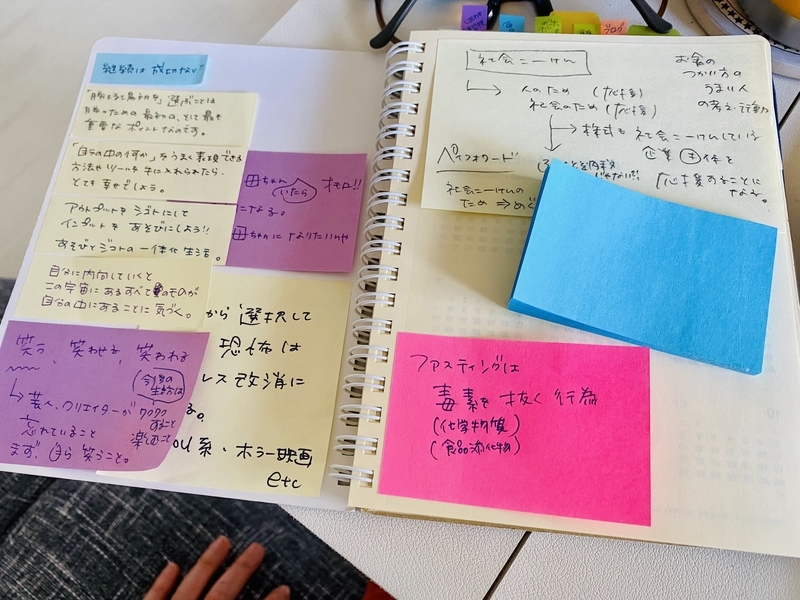 継続は
「勝てる場所を」選ぶことは
勝つための最初の、そして最も
重要なポイントなのです。
「自分の中の何か」をうまく表現できる
方法やツールを手に入れられたら
とても幸せでしょう。
アウトプットをシゴトにして
インプットをあそびにしよう!!
あそびとシゴトの一体化生活。
自分に内向していくと
この宇宙にあるすべてのものが
自分の中にあることに気づく。
笑う、笑わせる、笑われる
今後の
生き方は
→芸人、クリエイターがワクワク
すること
忘れていること 楽しむこと
まず、自ら笑うこと。
母ちゃん オモロ!!
いたら
になる。
母ちゃんになりたいわ
から選択して
恐怖は
レス改消に
る。
系・ホラー映画
etc
社会こーけん
人のため(応援)
社会のため(応援)
→株式も社会こーけんしている
企業 自体を
応援することに
なる。
お金の
つかい方の
うまい人
の考え・行動
ペイフォワード
社会こーけんの
ため ⇒めぐ
ファスティングは
毒素を抜く行為
(化学物質)
(食品添加物)
ブログ